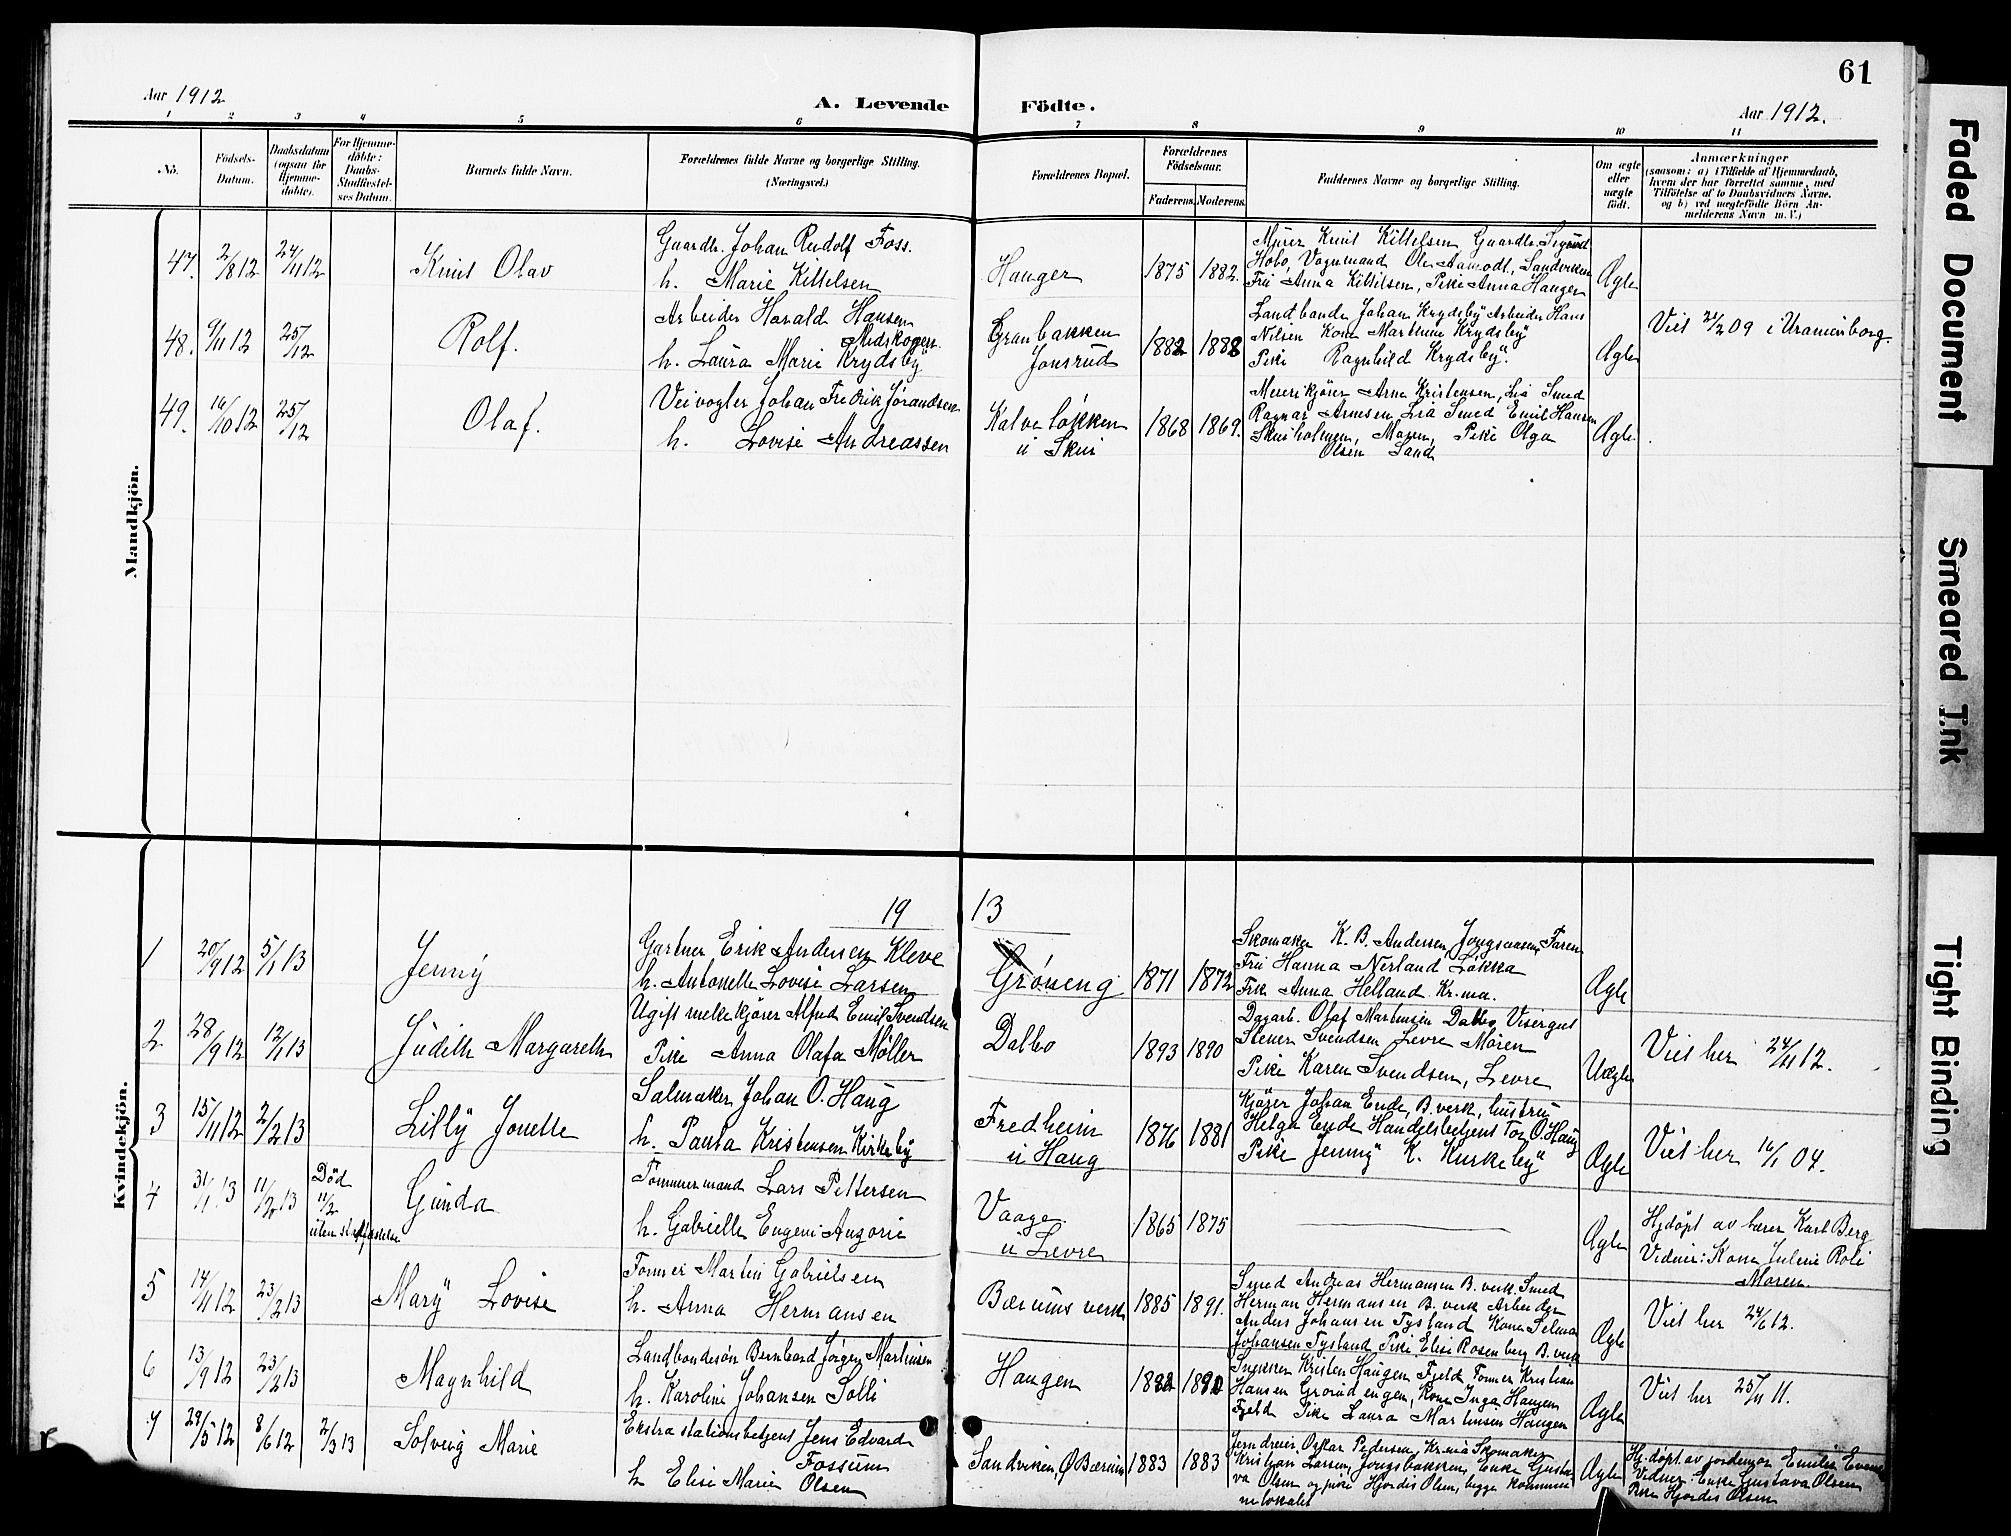 61
Aar 1912
A. Levende Födte.
Aar 1912.
1 2 3 4 5 6 7 8 9 10 11
No.
Födsels-
Datum.
Daabsdatum
(ogsaa for
Hjemme-
döbte).
For Hjemme-
döbte:
Daabs-
Stadfæstel-
ses Datum.
Barnets fulde Navn.
Forældrenes fulde Navne og borgerlige Stilling.
(Næringsvei.)
Forældrenes Bopæl.
Forældrenes
Födselsaar.
Faderens. Moderens.
Faddernes Navne og borgerlige Stilling.
Om ægte
eller
uægte
födt.
Anmærkninger
(saasom: a) i Tilfælde af Hjemmedaab,
hvem der har forrettet samme, med
Tilföielse af to Daabsvidners Navne,
og b) ved uægtefödte Börn An-
melderens Navn m. V.)
Mandkjön.
47. 2/8 12 24/11 12
Knut Olav
Gaardbr. Johan Rudolf Foss.
h. Marie Kittelsen
Hauger
1875 1882.
Murer Knut Kittelsen Gaardbr. Sigurd
Hobo, Vognmand Ole Aamodt, Sandviken
Fru Anna Kittilsen, Pike Anna Hauger
Ægte
48. 9/11 12 25/12
Rolf.
Arbeider Harald Hansen
Midskogen
h. Laura Marie Krydsby
Granbakken
Jonsrud
1882 1888
Landbonde Johan Krydsby Arbeider Hans
Nilsen Kone Martinne Krydsby
Pike Ragnhild Krydsby.
Ægte
Viet 21/2 09 i Uranienborg.
49. 16/10 12 25/12
Olaf.
Veivogter Johan Fredrik Jörandsen
h. Lovise Andreassen
Kalveløkken
u Skui
1868 1869.
Meierikjører Arne Kristensen, Lia Smed
Ragnar Arnesen Lia Smed Emil Hansen
Skuiholmen, Maren, Pike Olga
Olsen Sand
Ægte
Kvindekjön.
19 13
1 20/9 12 5/1 13
Jenny
Gartner Erik Andersen Kleve
h. Antonette Lovise Larsen
Grøneng
1871 1872
Skomaker K. B. Andersen, Jongsaasen, Faren
Fru Hanna Nerland Løkka
Frk Anna Helland Kr.ma.
Ægte
2 28/9 12 12/1 13
Judith Margareth
Ugift melkekjører Alfred Emil Svendsen
Pike Anna Olafa Møller
Dalbo
1893 1890
Dagarb. Olaf Martinsen Dalbo, Visergut
Stener Svendsen Levre Møren
Pike Karen Svendsen, Levre
Uægte
Viet her 24/11 12.
3 15/11 12 2/2 13
Lilly Jonette
Salmaker Johan O. Haug
h. Paula Kristensen Kirkeby
Fredheim
u Haug
1876 1881
Kjører Johan Ende, B. verk, hustru
Helga Ende Handelsbetjent Tor O. Haug
Pike Jenny K. Kirkeby
Ægte
Viet her 16/1 04.
4 31/1 13 11/2 13
Død
11/2
uten stadfæstelse
Gunda
Tømmermand Lars Pettersen
h. Gabrielle Eugeni Angorie
Vaage
u Levre
1865 1875
Ægte
Hjdöpt av lærer Karl Berg
Vidner: Kone Juline Roli
Møren.
5 14/11 12 23/2 13
Mary Lovise
Former Martin Gabrielsen
h. Anna Hermansen
Bærums verk
1885 1891.
Smed Andreas Hermansen B. verk Smed
Herman Hermansen B. verk Arbeider
Anders Johansen Tysland Kone Selma
Johansen Tysland Pike Elise Rosenberg B. verk
Ægte
Viet her 24/6 12.
6 13/9 12 23/2 13
Magnhild
Landbondesøn Bernhard Jørgen Martinsen
h. Karoline Johansen Solli
Haugen
Snekker Kristen Haugen Fjeld Former Kristian
Hansen Grorudengen, Kone Inga Haugen
Fjeld Pike Laura Martinsen Haugen
Ægte
Viet her 25/11 11.
7 29/5 12 8/6 12 2/3 13
Solveig Marie
Ekstrastationsbetjent Jens Edvard
Fossum
h Elise Marie Olsen
Sandviken, Ø Bærum
1883 1883
Jerndreier Oskar Pedersen, Kr.nia Skomaker
Kristian Larsen, Jongsbakken Enke Gusta
va Olsen og pike Hjørdis Olsen, begge kommu
nelokalet
Ægte
Hj. döpt av jordemor Emilie Evens
Vidner: Enke Gustava Olsen
Pike Hjordis Olsen
Faded Document
Smeared Ink
Tight Binding